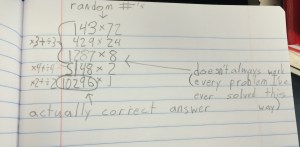 random #'s
143×72
×3÷÷3 429×24
1287×8
×4÷÷4 5148×2
×2÷÷2 10296× 1
doesn't always work
(every problem I've
ever solved this
way)
actually correct answer